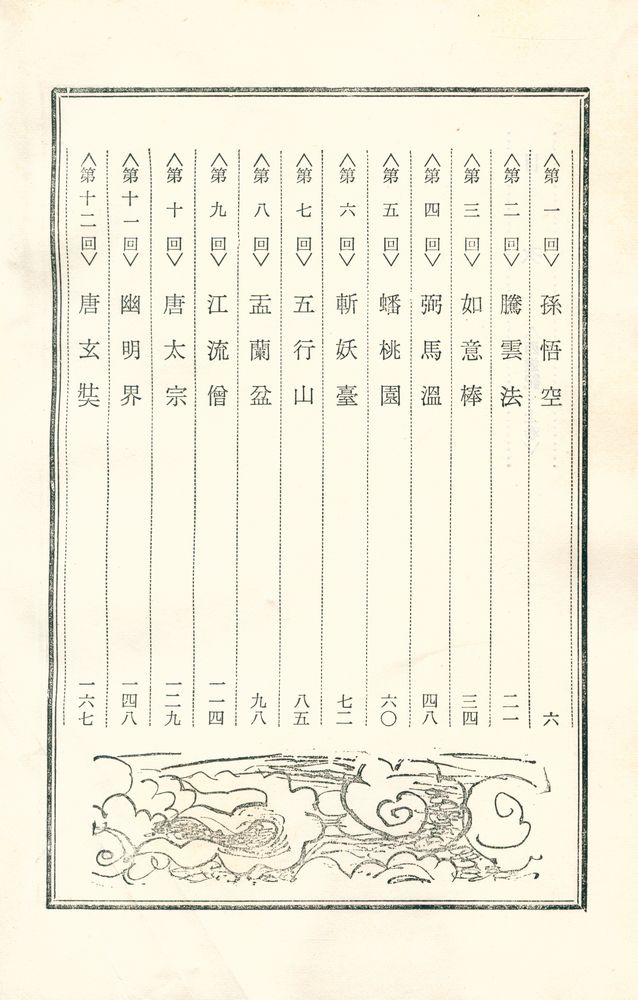 〈第一回〉孫悟空 六
〈第二回〉騰雲法 二一
〈第三回〉如意棒 三四
〈第四回〉弼馬溫 四八
〈第五回〉蟠桃園 六〇
〈第六回〉斬妖臺 七二
〈第七回〉五行山 八五
〈第八回〉盂蘭盆 九八
〈第九回〉江流僧 一一四
〈第十回〉唐太宗 一二九
〈第十一回〉幽明界 一四八
〈第十二回〉唐玄奘 一六七